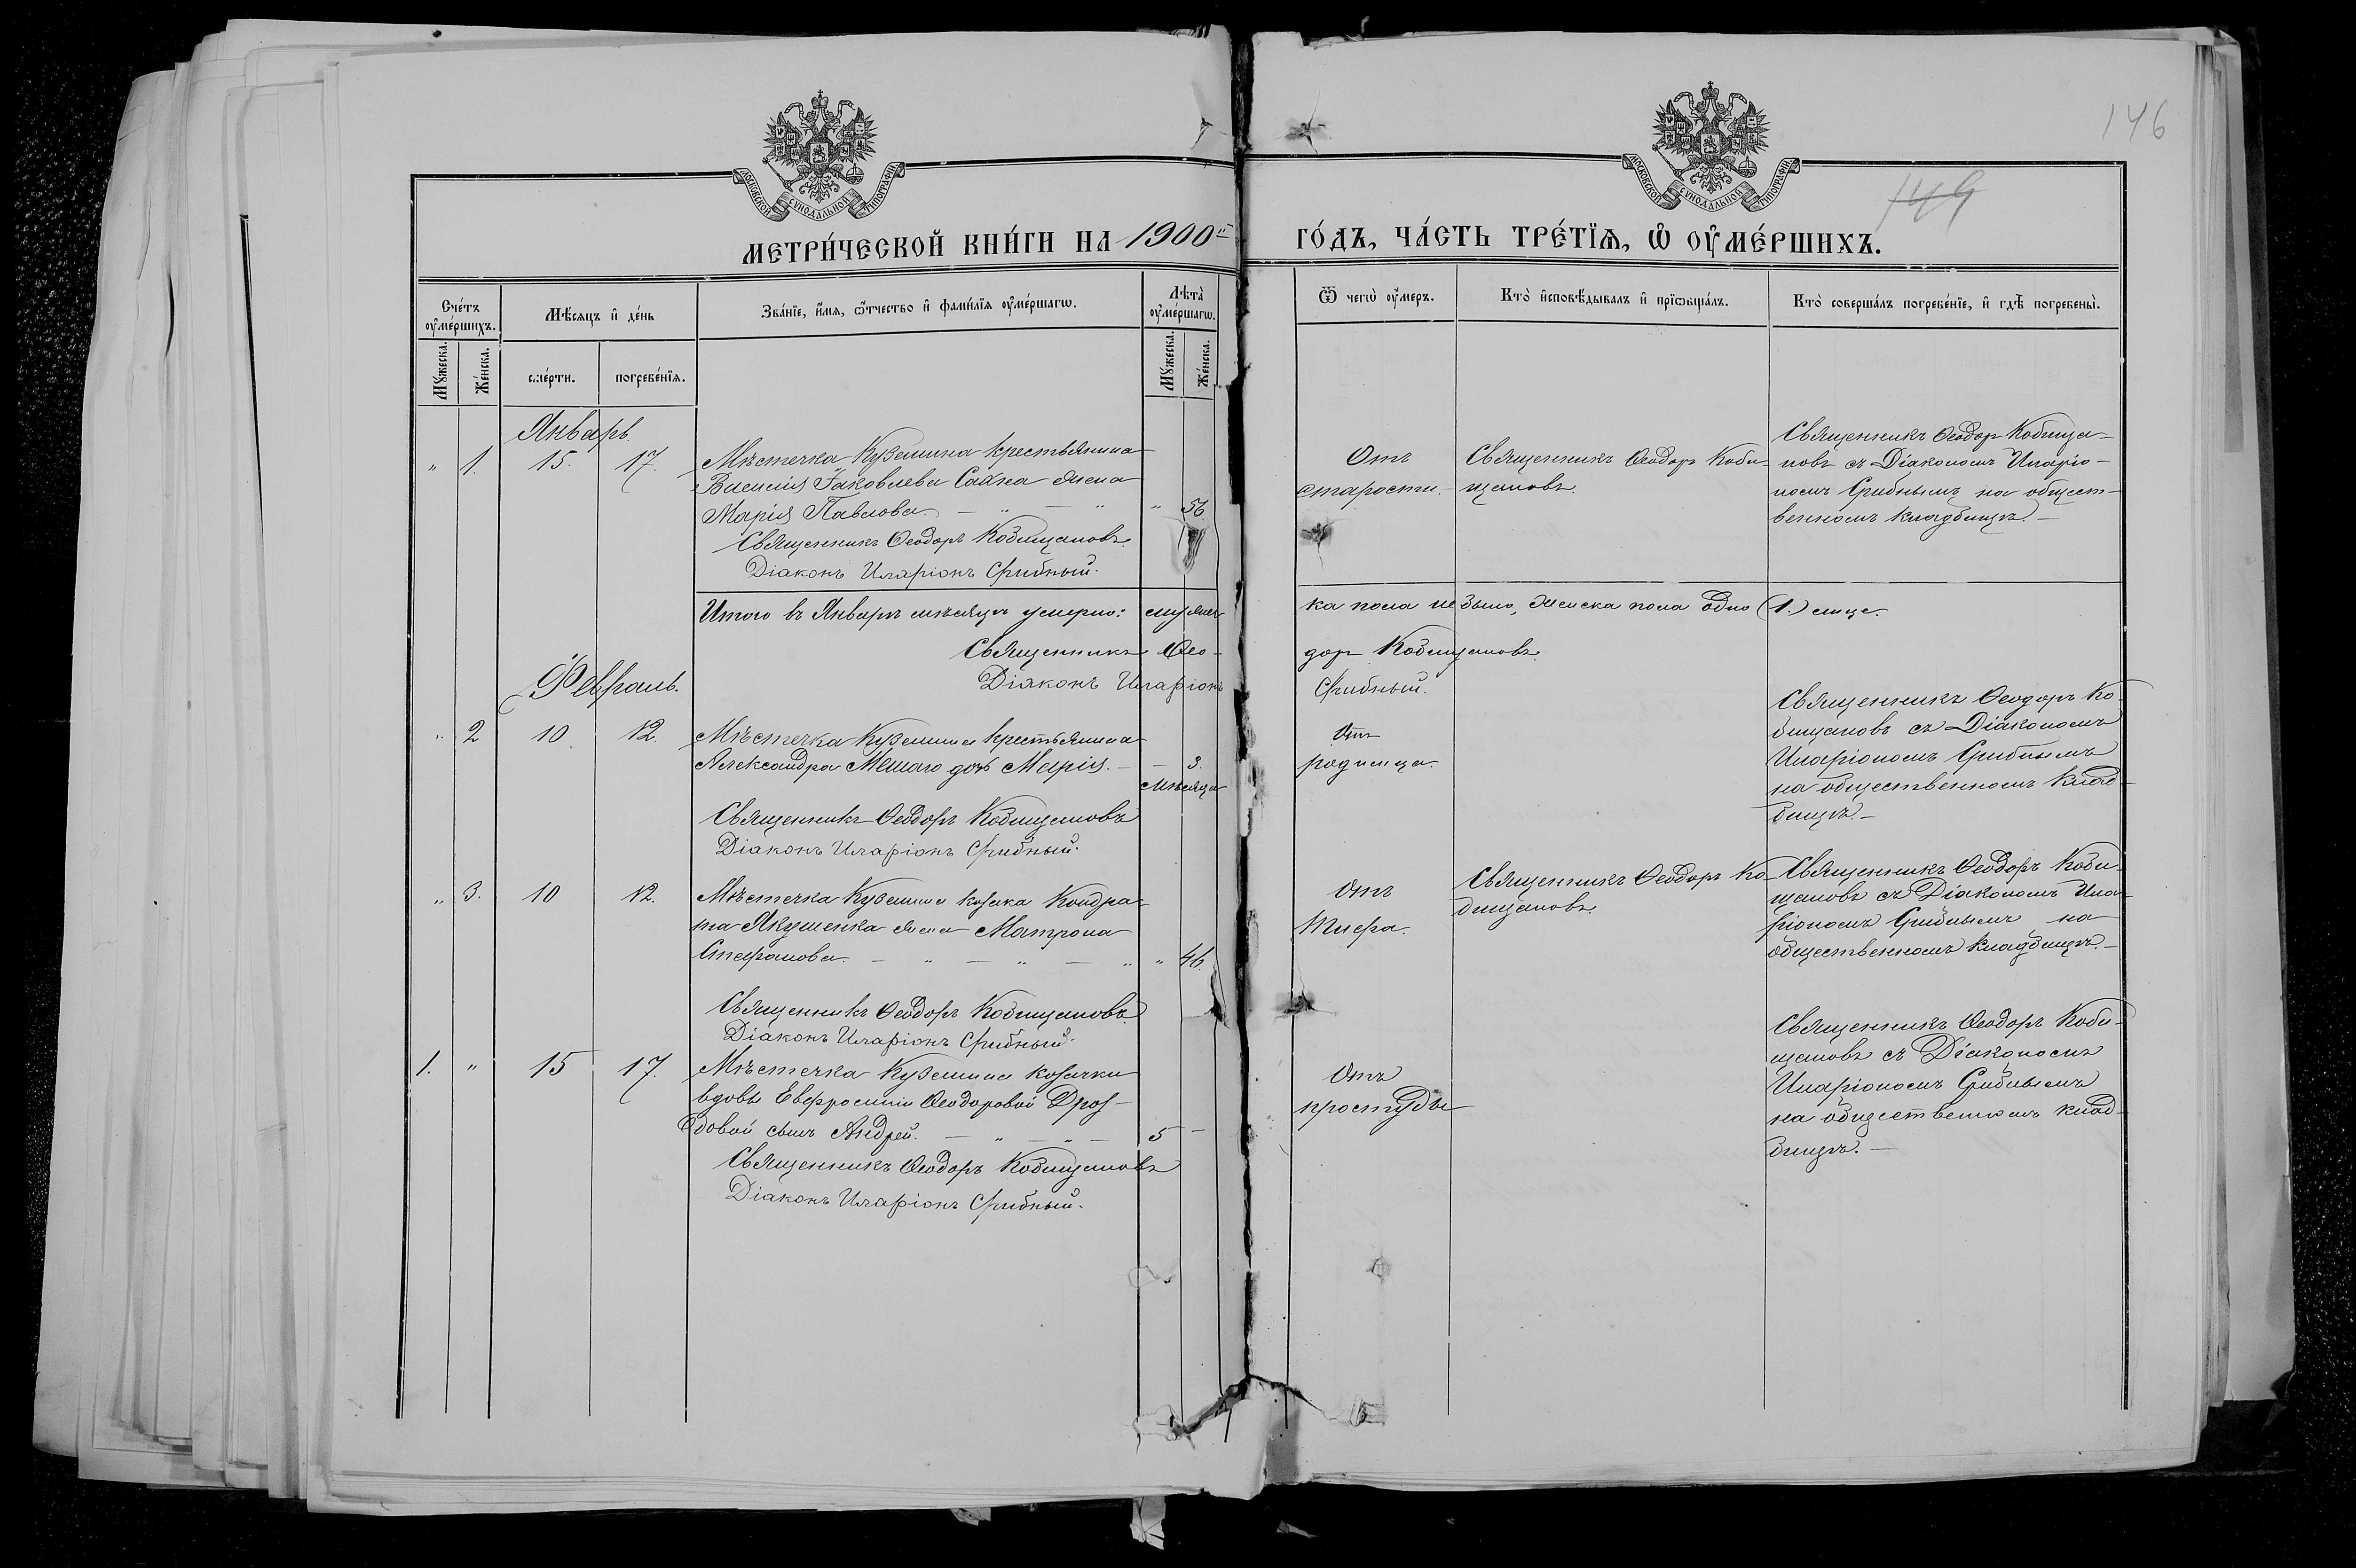 146
149
МОСКОВСКОЙ СѴНОДАЛЬНОЙ ТИПОГРАФІИ
МОСКОВСКОЙ СѴНОДАЛЬНОЙ ТИПОГРАФІИ
МЕТРИ́ЧЕСКОЙ КНИ́ГИ НА 1900й ГО́ДЪ, ЧА́СТЬ ТРЕ́ТЇѦ, Ѽ ОУ҆МЕ́РШИХЪ.
Сче́тъ оу҆ме́ршихъ.
Мꙋ́жеска.
Же́нска.
Мѣ́сяцъ и҆ де́нь
сме́рти.
погребе́нїѧ.
Зва́нїе, и҆́мѧ, ѻ҆́тчество и҆ фами́лїѧ оу҆ме́ршагѡ.
Лѣта̀ оу҆ме́ршагѡ.
Мꙋ́жеска.
Же́нска.
Ѿ чегѡ̀ оу҆́меръ.
Кто̀ и҆сповѣ́дывалъ и҆ прїѡбща́лъ.
Кто̀ соверша́лъ погребе́нїе, и҆ гдѣ̀ погребены̀.
Январь.
" 1. 15. 17. Мѣстечка Куземина крестьянина
Василія Іаковлева Сайка жена
Марія Павлова. — " — " " 56
Священникъ Ѳеодоръ Кобищановъ.
Діаконъ Иларіонъ Срибный.
Отъ
старости.
Священникъ Ѳеодоръ Коби-
щановъ.
Священникъ Ѳеодоръ Кобища-
новъ съ Діакономъ Иларіо-
номъ Срибнымъ на общест-
венномъ кладбищѣ. —
Итого въ Январѣ мѣсяцѣ умерло: мужес-
ка пола не было, женска пола одно (1.) лице.
Священникъ Ѳео-
доръ Кобищановъ.
Діаконъ Иларіонъ
Срибный.
Февраль.
" 2 10 12. Мѣстечка Куземина крестьянина
Александра Малаго дочь Марія. — — 3.
мѣсяца
Священникъ Ѳеодоръ Кобищановъ
Діаконъ Иларіонъ Срибный.
Отъ
родимца.
Священникъ Ѳеодоръ Ко-
бищановъ съ Діакономъ
Иларіономъ Срибнымъ
на общественномъ клад-
бищѣ. —
" 3. 10 12. Мѣстечка Куземина козака Кондра-
та Якушенка жена Матрона
Стефанова. — " — " — " " 46.
Священникъ Ѳеодоръ Кобищановъ.
Діаконъ Иларіонъ Срибный.
Отъ
тифа.
Священникъ Ѳеодоръ Ко-
бищановъ.
Священникъ Ѳеодоръ Коби-
щановъ съ Діакономъ Ила-
ріономъ Срибнымъ на
общественномъ кладбищѣ. —
1. " 15 17. Мѣстечка Куземина козачки
вдовы Евфросиніи Ѳеодоровой Дроз-
довой сынъ Андрей. — " — " — 5 —
Священникъ Ѳеодоръ Кобищановъ
Діаконъ Иларіонъ Срибный.
Отъ
простуды
Священникъ Ѳеодоръ Коби-
щановъ съ Діакономъ
Иларіономъ Срибнымъ
на общественномъ клад-
бищѣ. —